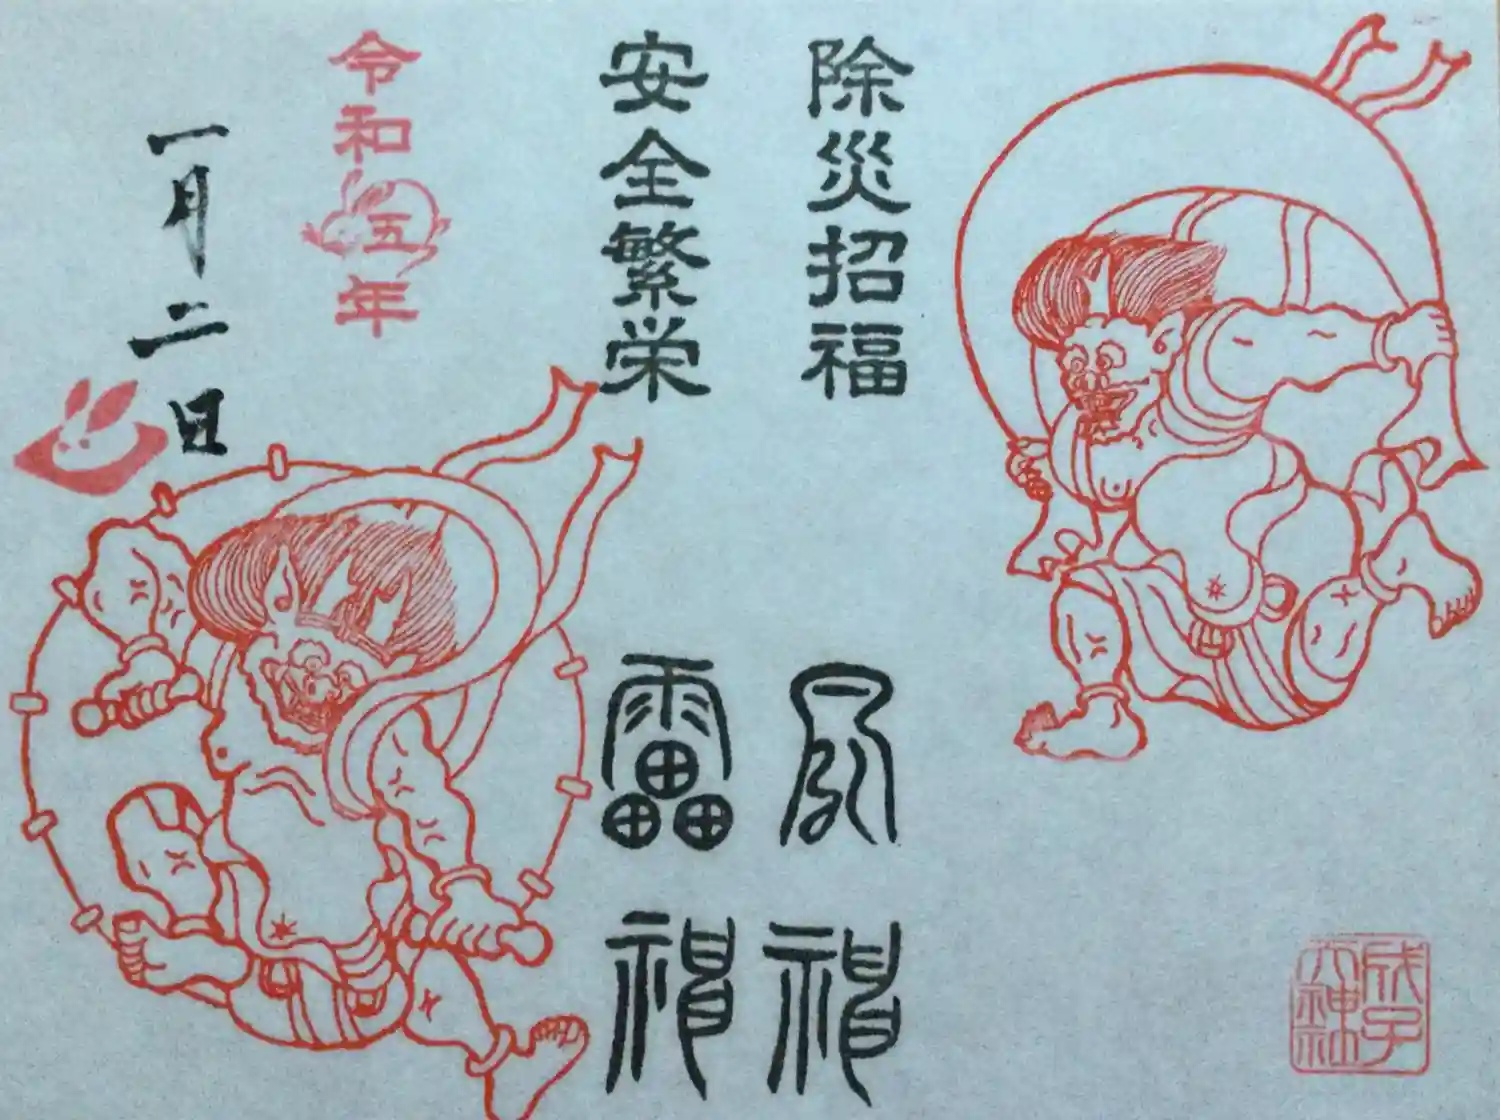 除災招福
安全繁栄
風神
雷神
令和五年
一月二日
成子
天神社